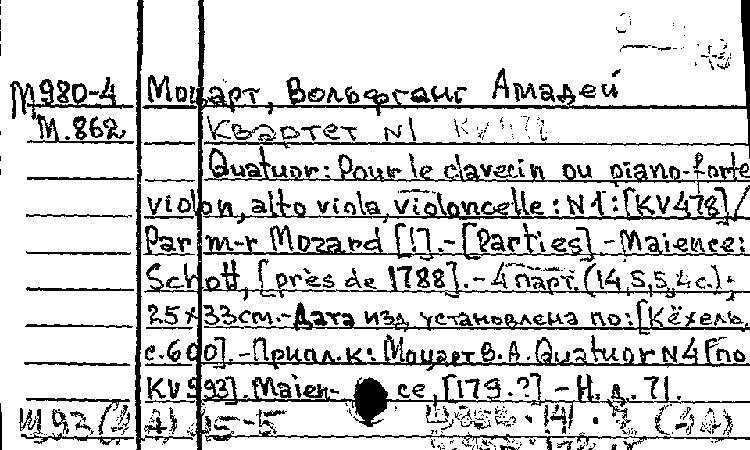 М980-4 Моцарт, Вольфганг Амадей
М.862 Квартет N1 KV478
Quatuor: Pour le clavecin ou piano-forte
violon, alto viola, violoncelle : N1 : [KV478] /
Par m-r Mozard [!]. - [Parties]. - Maience:
Schott, [près de 1788]. - 4 парт. (14,5,5,4с.);
25×33см. - Дата изд. установлена по: [Кёхель,
с.600]. - Припл. к: Моцарт В.А. Quatuor N4 [по
KV 593]. Maien- ce, [179.?] - Н.д. 71.